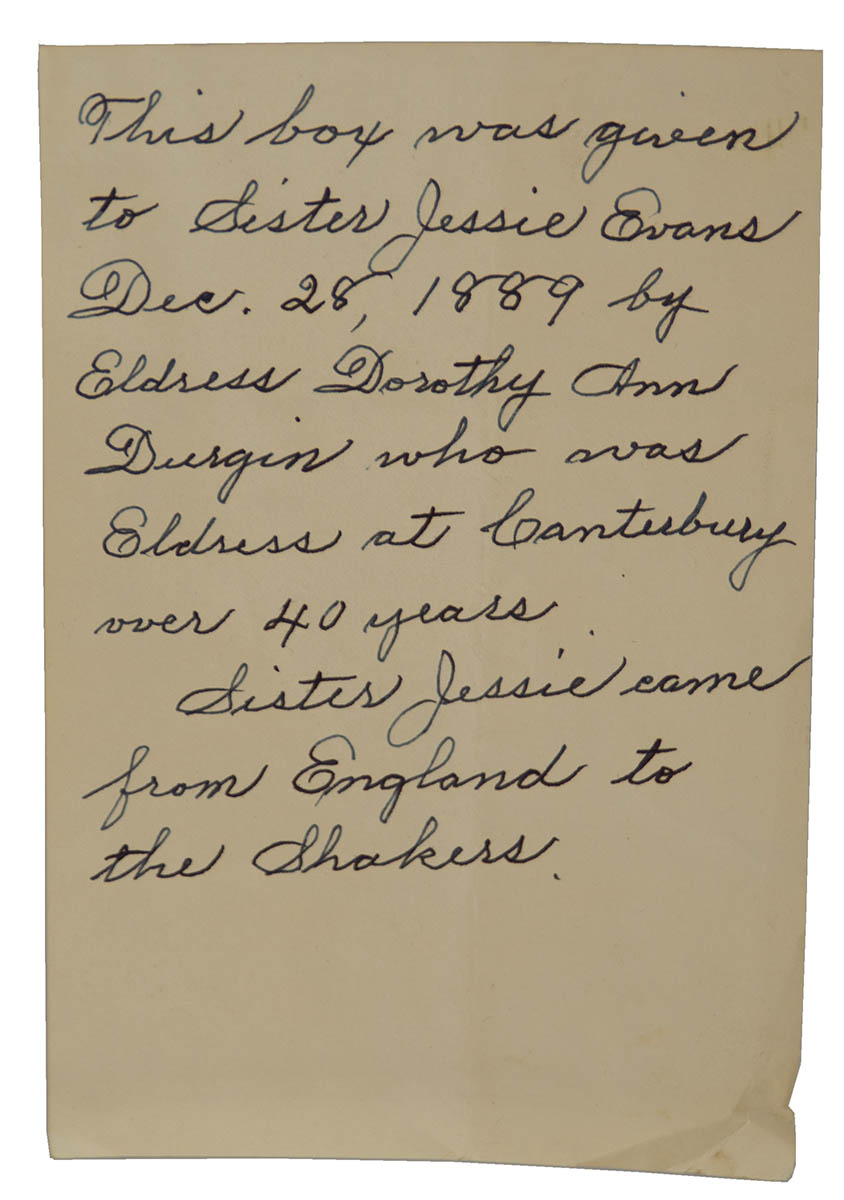 This box was given
to Sister Jessie Evans
Dec. 28, 1889 by
Eldress Dorothy Ann
Durgin who was
Eldress at Canterbury
over 40 years.
Sister Jessie came
from England to
the Shakers.